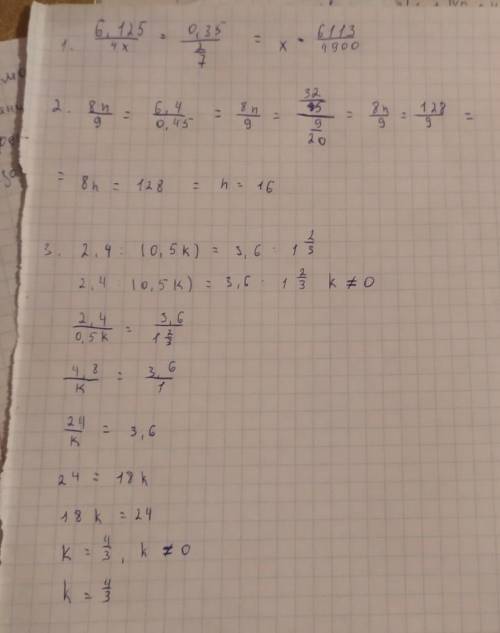 1. 6,125/4x = 0,35/(2/7) = x = 6113/4900
2. 8n/9 = 6,4/0,45 = 8n/9 = (32/5)/(9/20) = 8n/9 = 128/9 =
= 8n = 128 = n = 16
3. 2,4 : (0,5k) = 3,6 : 1 2/3
2,4 : (0,5k) = 3,6 : 1 2/3 k ≠ 0
2,4/0,5k = 3,6/1 2/3
4,8/k = 3,6/1
24/k = 3,6
24 = 18k
18k = 24
k = 4/3, k ≠ 0
k = 4/3